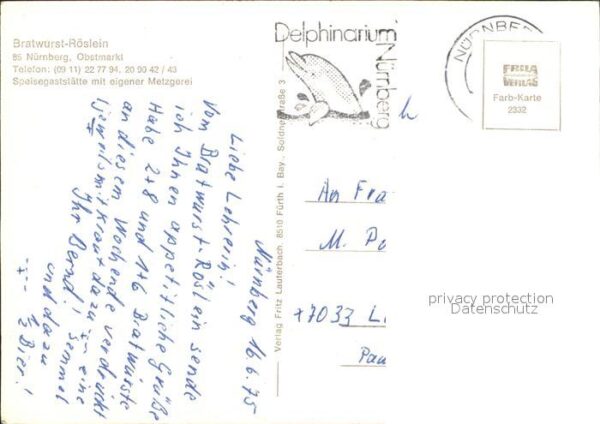 Bratwurst-Röslein
85 Nürnberg, Obstmarkt
Telefon: (09 11) 22 77 94, 20 90 42 / 43
Speisegaststätte mit eigener Metzgerei
Delphinarium
Nürnberg
NÜRNBE
FRILA
VERLAG
Farb-Karte
2332
Verlag Fritz Lauterbach, 8510 Fürth i. Bay., Soldnerstraße 3
Nürnberg 16.6.75
Liebe Lehrerin!
Vom Bratwurst-Röslein sende
ich Ihnen appetitliche Grüße
Habe 2+8 und 1+6 Bratwürste
an diesem Wochende verdrückt
(jeweils mit Kraut dazu eine
Ihr Bernd! Semmel
und dazu
½ Bier!
An Fra
M. Pa
+7033 L
Pau
privacy protection
Datenschutz